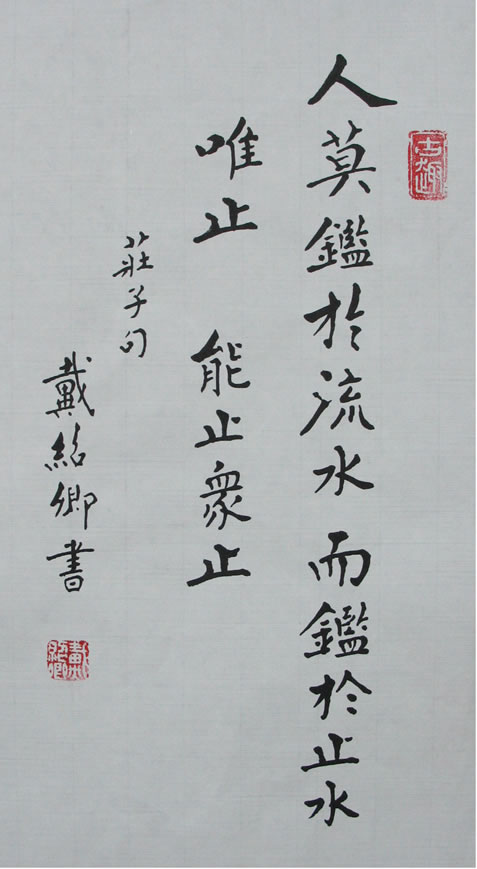 古趣
人莫鑑於流水 而鑑於止水
唯止 能止衆止
莊子句
戴紹卿書
戴紹卿